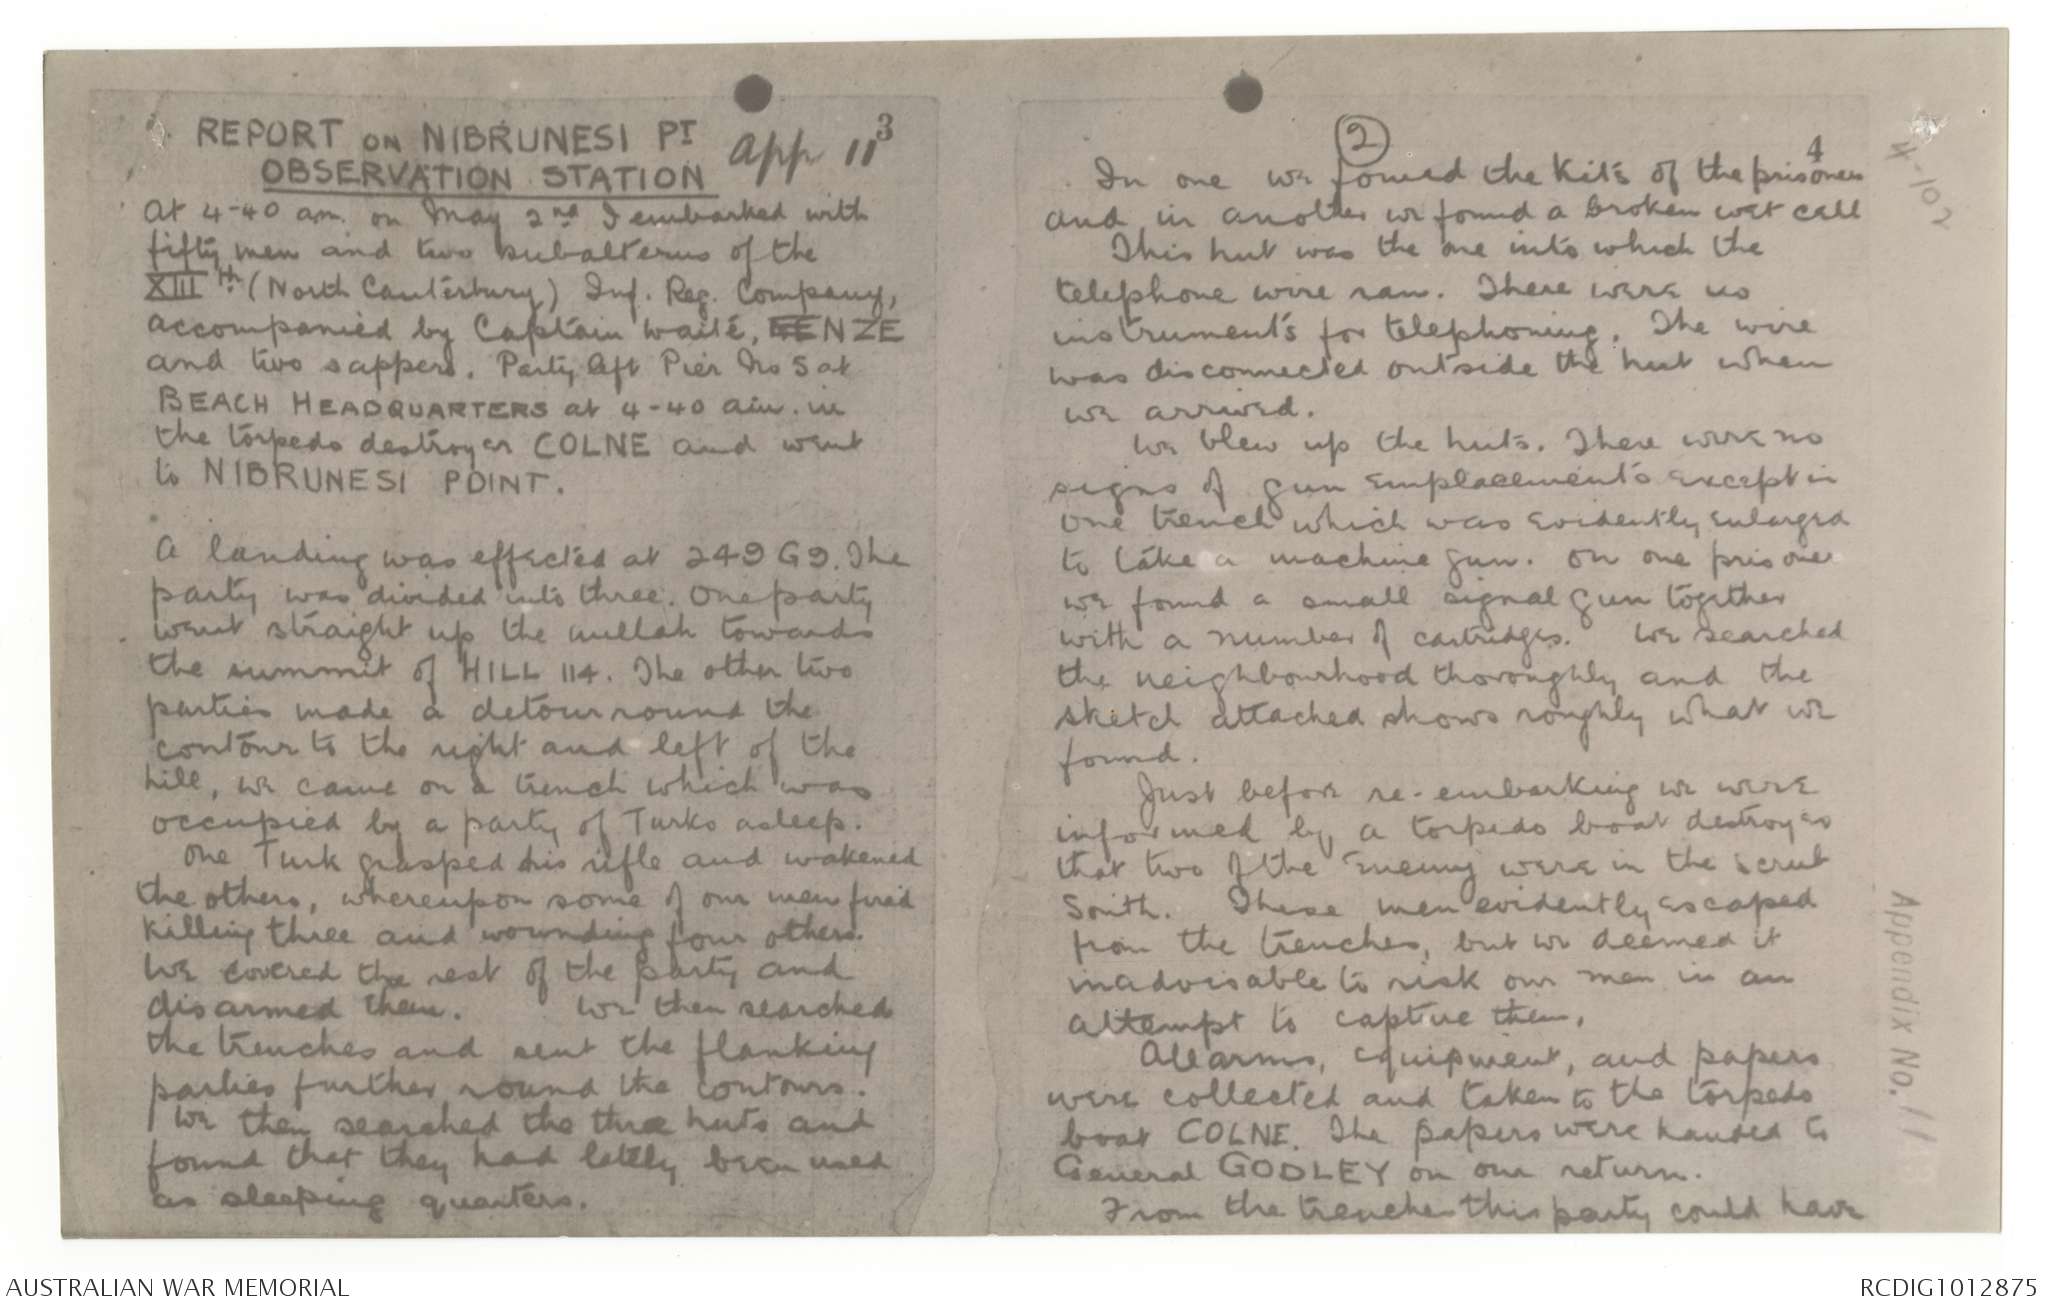 REPORT ON NIBRUNESI PT
OBSERVATION STATION
App 11
3
At 4-40 am. on May 2nd I embarked with
fifty men and two subalterns of the
XIIIth. (North Canterbury) Inf. Reg. Company,
accompanied by Captain Waite, NZE
and two sappers. Party left Pier No 5 at
BEACH HEADQUARTERS at 4-40 am. in
the torpedo destroyer COLNE and went
to NIBRUNESI POINT.
A landing was effected at 249 G9. The
party was divided into three. One party
went straight up the nullah towards
the summit of HILL 114. The other two
parties made a detour round the
contour to the right and left of the
hill, we came on a trench which was
occupied by a party of Turks asleep.
One Turk grasped his rifle and wakened
the others, whereupon some of our men fired
killing three and wounding four others.
We covered the rest of the party and
disarmed them. We then searched
the trenches and sent the flanking
parties further round the contours.
We then searched the three huts and
found that they had lately been used
as sleeping quarters.
2
4
In one we found the kits of the prisoners
and in another we found a broken wet cell
This hut was the one into which the
telephone wire ran. There were no
instruments for telephoning. The wire
was disconnected outside the hut when
we arrived.
We blew up the huts. There were no
signs of gun emplacements except in
one trench which was evidently enlarged
to take a machine gun. On one prisoner
we found a small signal gun together
with a number of cartridges. We searched
the neighbourhood thoroughly and the
sketch attached shows roughly what we
found.
Just before re-embarking we were
informed by a torpedo boat destroyer
that two of the enemy were in the scrub
South. These men evidently escaped
from the trenches, but we deemed it
inadvisable to risk our men in an
attempt to capture them.
All arms, equipment, and papers
were collected and taken to the torpedo
boat COLNE. The papers were handed to
General GODLEY on our return.
From the trenches this party could have
4-102
Appendix No. 11
AUSTRALIAN WAR MEMORIAL
RCDIG1012875